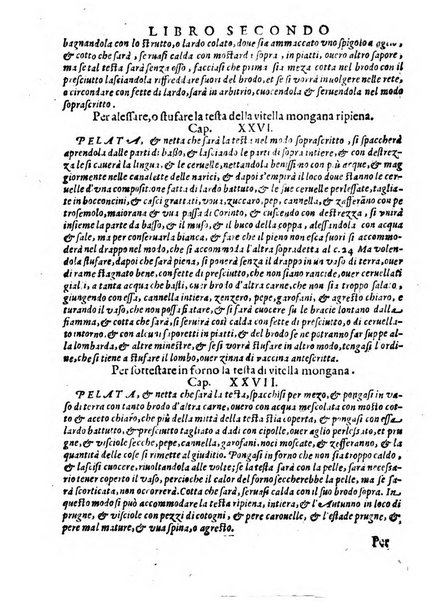 LIBRO SECONDO
bagnandola con lo strutto, o lardo colato, doue sia ammaccato vno spigolo d'aglio,
& cotta che sarà, seruasi calda con mostarda sopra, in piatti, ouero altro sapore,
ma se tal testa sarà senza osso, facciasi che prima sia meza cotta nel brodo con il
presciutto lasciandola riffreddare fuori del brodo, et se si vorrà inuolgere nelle rete,
o circondare con fette di lardo, sarà in arbitrio, cuocendola & seruendola nel modo
soprascritto.
Per alessare, o stufare la testa della vitella mongana ripiena.
Cap. XXVI.
PELATA, & netta che sarà la testa nel modo soprascritto, si spaccherà
aprendola dalle parti di basso, & lasciando le parti di sopra intiere, & con destrez-
za le si cauerà la lingua, & le ceruelle, & netterassi lauandola benissimo con più acque, &
maggiormente nelle canalette delle narici, & dapoi s'empierà il loco doue stanno le cer-
uelle d'vna compositione fatta di lardo battuto, & le sue ceruelle perlessate, taglia-
te in bocconcini, & casci grattati, voua, zuccaro, pepe, cannella, & zafferano con pe
trosemolo, maiorana & vua passa di Corinto, & cuscendo con destrezza, si vnirà
insieme la parte da basso, & il muso, & il buco della coppa, alessandola con acqua
& sale, ma per conseruarla bianca, & far che il pieno non esca fuori si accommo-
derà nel drappo nel modo, che si accommoda l'altra sopradetta a c.24 Ma volen-
dola stufare, dapoi che sarà piena, si ponerà senza il drappo in vn vaso di terra, ouer
di rame stagnato bene, con fette di presciutto, che non siano rancide, ouer ceruellati
gialli, & tanta acqua che basti, ouer brodo d'altra carne, che non sia troppo salato,
giungendo con essa, cannella intiera, zenzero, pepe, garofani, & agresto chiaro, e
turando il vaso, che non possa fiatare, & si farà cuocere su le bracie lontano dalla
fiamma, & cotta che sarà, si seruirà così calda con fette di presciutto, o di ceruella-
to intorno, & con il suo brodo sopra in piatti. Del brodo se ne potranno far suppe al-
la lombarda, & altre minestre, & se si vorrà stufare in altro modo, tengasi l'ordi-
ne, che si tiene a stufare il lombo, ouer zinna di vaccina antescritta.
Per sottestare in forno la testa di vitella mongana.
Cap. XXVII.
PELATA, & netta che sarà la testa, spacchisi per mezo, & pongasi in va-
so di terra con tanto brodo d'altra carne, ouero con acqua mescolata con mosto cot-
to & aceto chiaro, che più della mittà della testa stia coperta, & giungansi con esso
lardo battuto, & presciutto tagliato in fette, ouer aglio perlessato, & prugne,
& visciole secche, pepe, cannella, garofani, noci moscate, & zafferano, & la
quantità delle cose si rimette al giuditio. Pongasi in forno che non sia troppo caldo,
& lascisi cuocere, riuoltandola alle volte; se la testa sarà con la pelle, sarà necessa-
rio tener coperto il vaso, percioche il calor del forno seccherebbe la pelle, ma se
sarà scorticata, non occorrerà. Cotta che sarà, seruasi calda con il suo brodo sopra. In
questo modo si può accommodare la testa ripiena, intiera, & l'Autunno in loco di
prugne, & visciole con pezzi di cotogni, & pere carouelle, & l'estade prugne, &
pere mal mature, & vua spina, o agresto.
Per